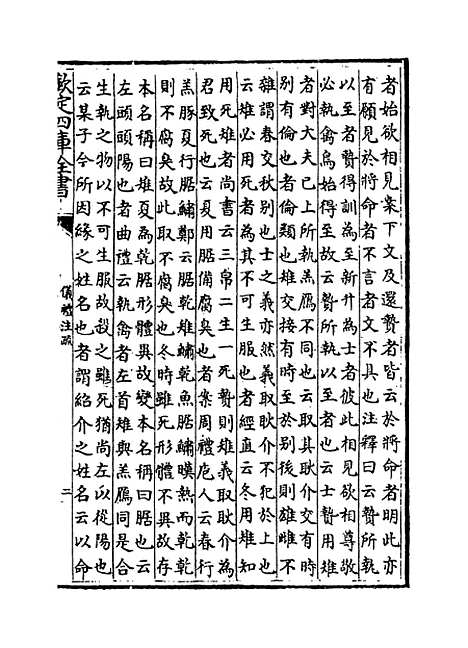 者始欲相見案下文及還贄者皆云於將命者明此亦
有願見於將命者不言者文不具也注釋曰云贄所執
以至者贄得訓為至新升為士者彼此相見欲相尊敬
必執禽鳥始得至故云贄所執以至者也云士贄用雉
者對大夫已上所執羔鴈不同也云取其耿介交有時
別有倫也者倫類也雉交接有時至於別後則雄雌不
雜謂春交秋別也士之義亦然義取耿介不犯於上也
云雉必用死者為其不可生服也者經直云冬用雉知
用死雉者尚書云三帛二生一死贄則雉義取耿介為
君致死也云夏用腒備腐臭也者案周禮庖人云春行
羔豚夏行腒鱐鄭云腒乾雉鱐乾魚腒鱐暵熱而乾乾
則不腐臭故此取不腐臭也冬時雖死形體不異故存
本名稱曰雉夏為乾腒形體異故變本名稱曰腒也云
左頭頭陽也者曲禮云執禽者左首雉與羔鴈同是合
生執之物以不可生服故殺之雖死猶尚左以從陽也
云某子今所因緣之姓名也者謂紹介之姓名云以命
欽定四庫全書
儀禮注疏
二